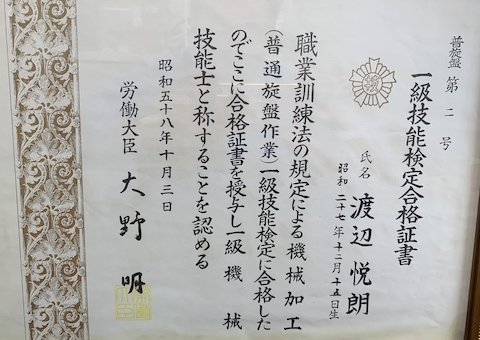 普旋盤 第二号
一級技能検定合格証書
氏名 渡辺悦朗
昭和二十七年十二月十五日生
職業訓練法の規定による機械加工
(普通旋盤作業)一級技能検定に合格した
のでここに合格証書を授与し一級機械
技能士と称することを認める
昭和五十八年十月三日
労働大臣 大野明